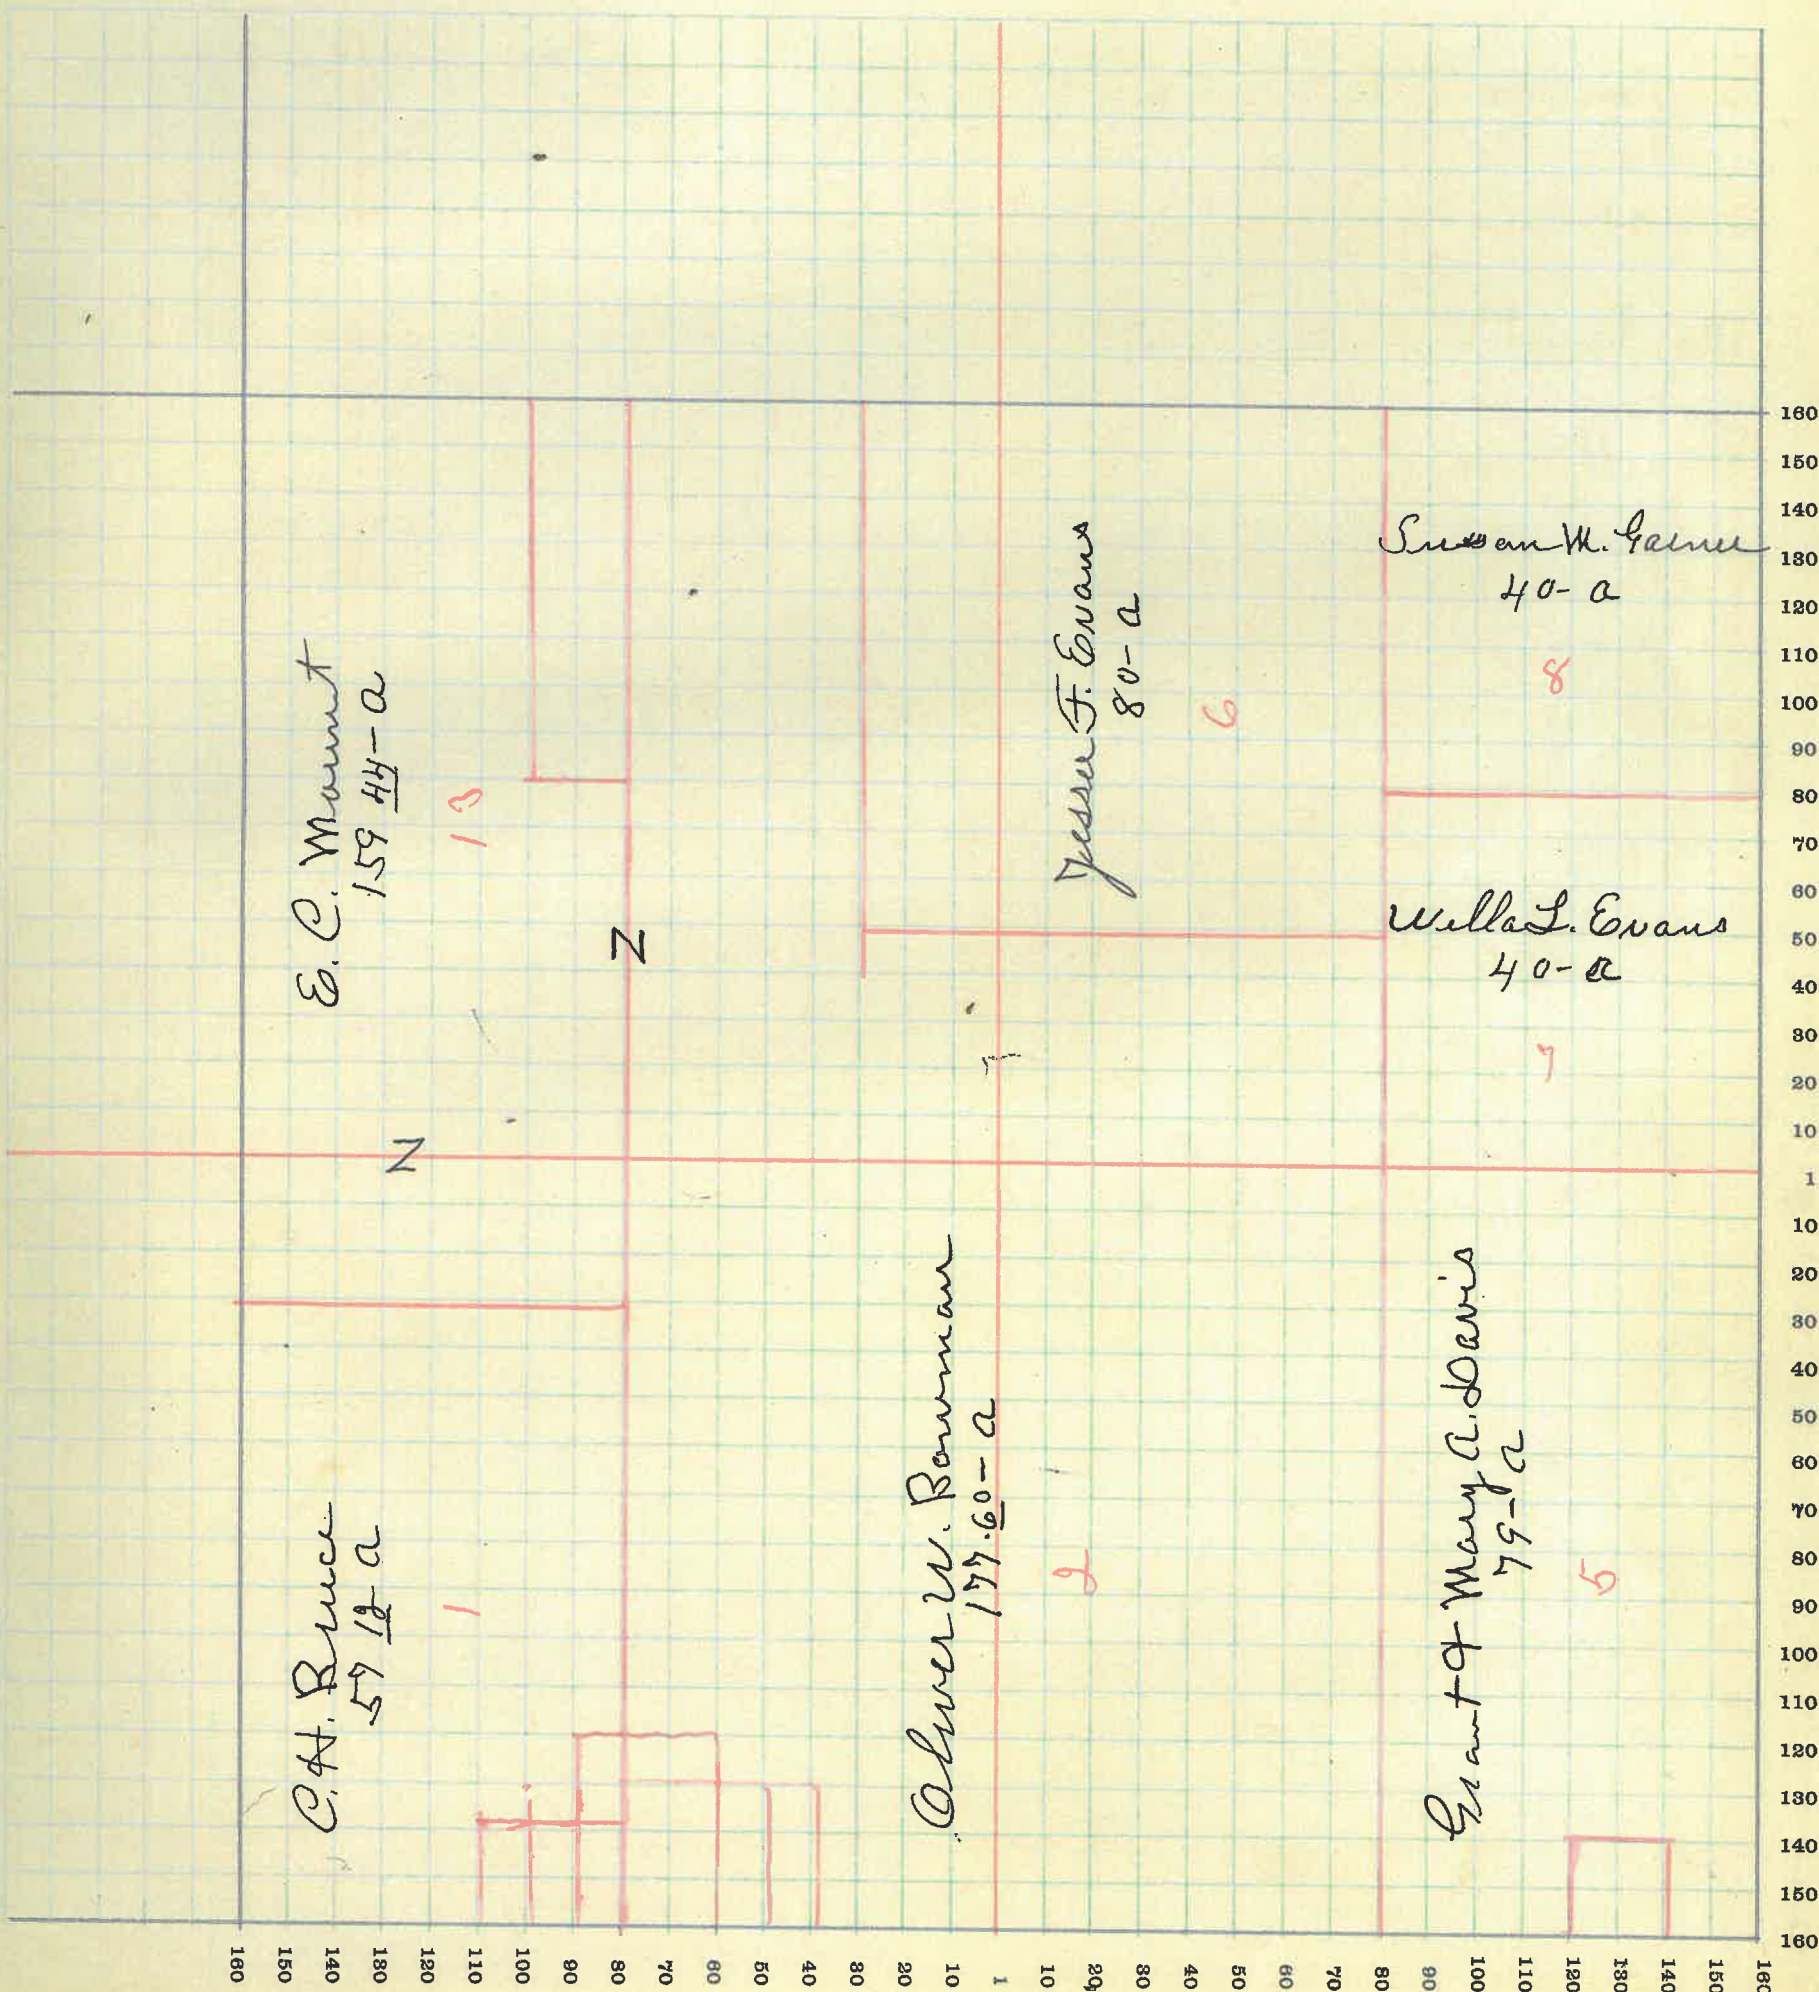 E. C. Mount
159 44 - a
13
C. H. Bruce
57 12 - a
1
N
Z
Oliver W. Bowman
177.60 - a
2
7
Jesse F. Evans
80 - a
6
Susan M. Garner
40 - a
8
Willa L. Evans
40 - a
7
Grant & Mary A. Davis
79 - a
5
160
150
140
130
120
110
100
90
80
70
60
50
40
30
20
10
1
10
20
30
40
50
60
70
80
90
100
110
120
130
140
150
160
160 150 140 130 120 110 100 90 80 70 60 50 40 30 20 10 1 10 20 30 40 50 60 70 80 90 100 110 120 130 140 150 160